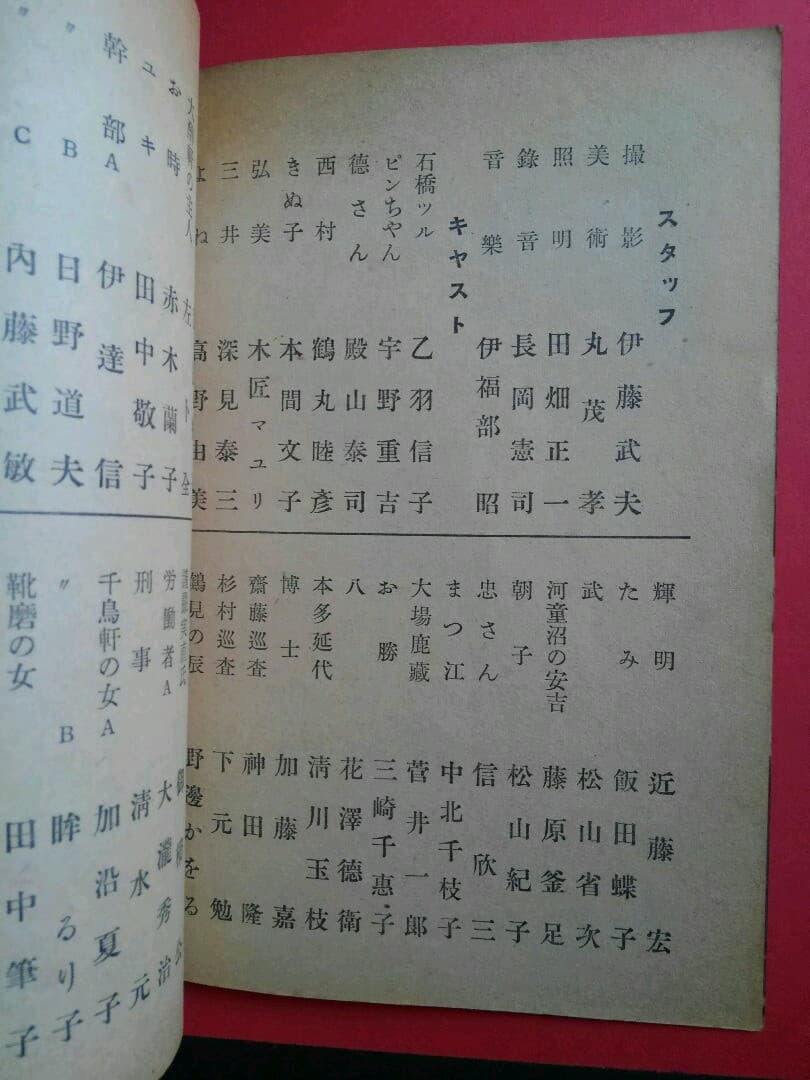 スタッフ
撮影 伊藤武夫
美術 丸茂孝
照明 田畑正一
錄音 長岡憲司
音樂 伊福部昭
キャスト
石橋ツル 乙羽信子
ピンちやん 宇野重吉
德さん 殿山泰司
西村 鶴丸睦彥
きぬ子 本間文子
弘美 木匠マユリ
三井 深見泰三
よね 高野由美
輝明 近藤宏
たみ 飯田蝶子
武 松山省次
河童沼の安吉 藤原釜足
朝子 松山紀子
忠さん 信欣三
まつ江 中北千枝子
大場鹿藏 菅井一郎
お勝 三崎千惠子
八 花澤德衛
本多延代 清川玉枝
博士 加藤嘉
齋藤巡査 神田隆
杉村巡査 下元勉
鶴見の辰 野邊かをる
左卜全
お時 赤木蘭子
ユキ 田中敬子
幹部A 伊達信
〃B 日野道夫
〃C 内藤武敏
労働者A 大瀧秀治
刑事 清水元
千鳥軒の女A 加沿夏子
〃B 眸るり子
靴磨の女 田中筆子